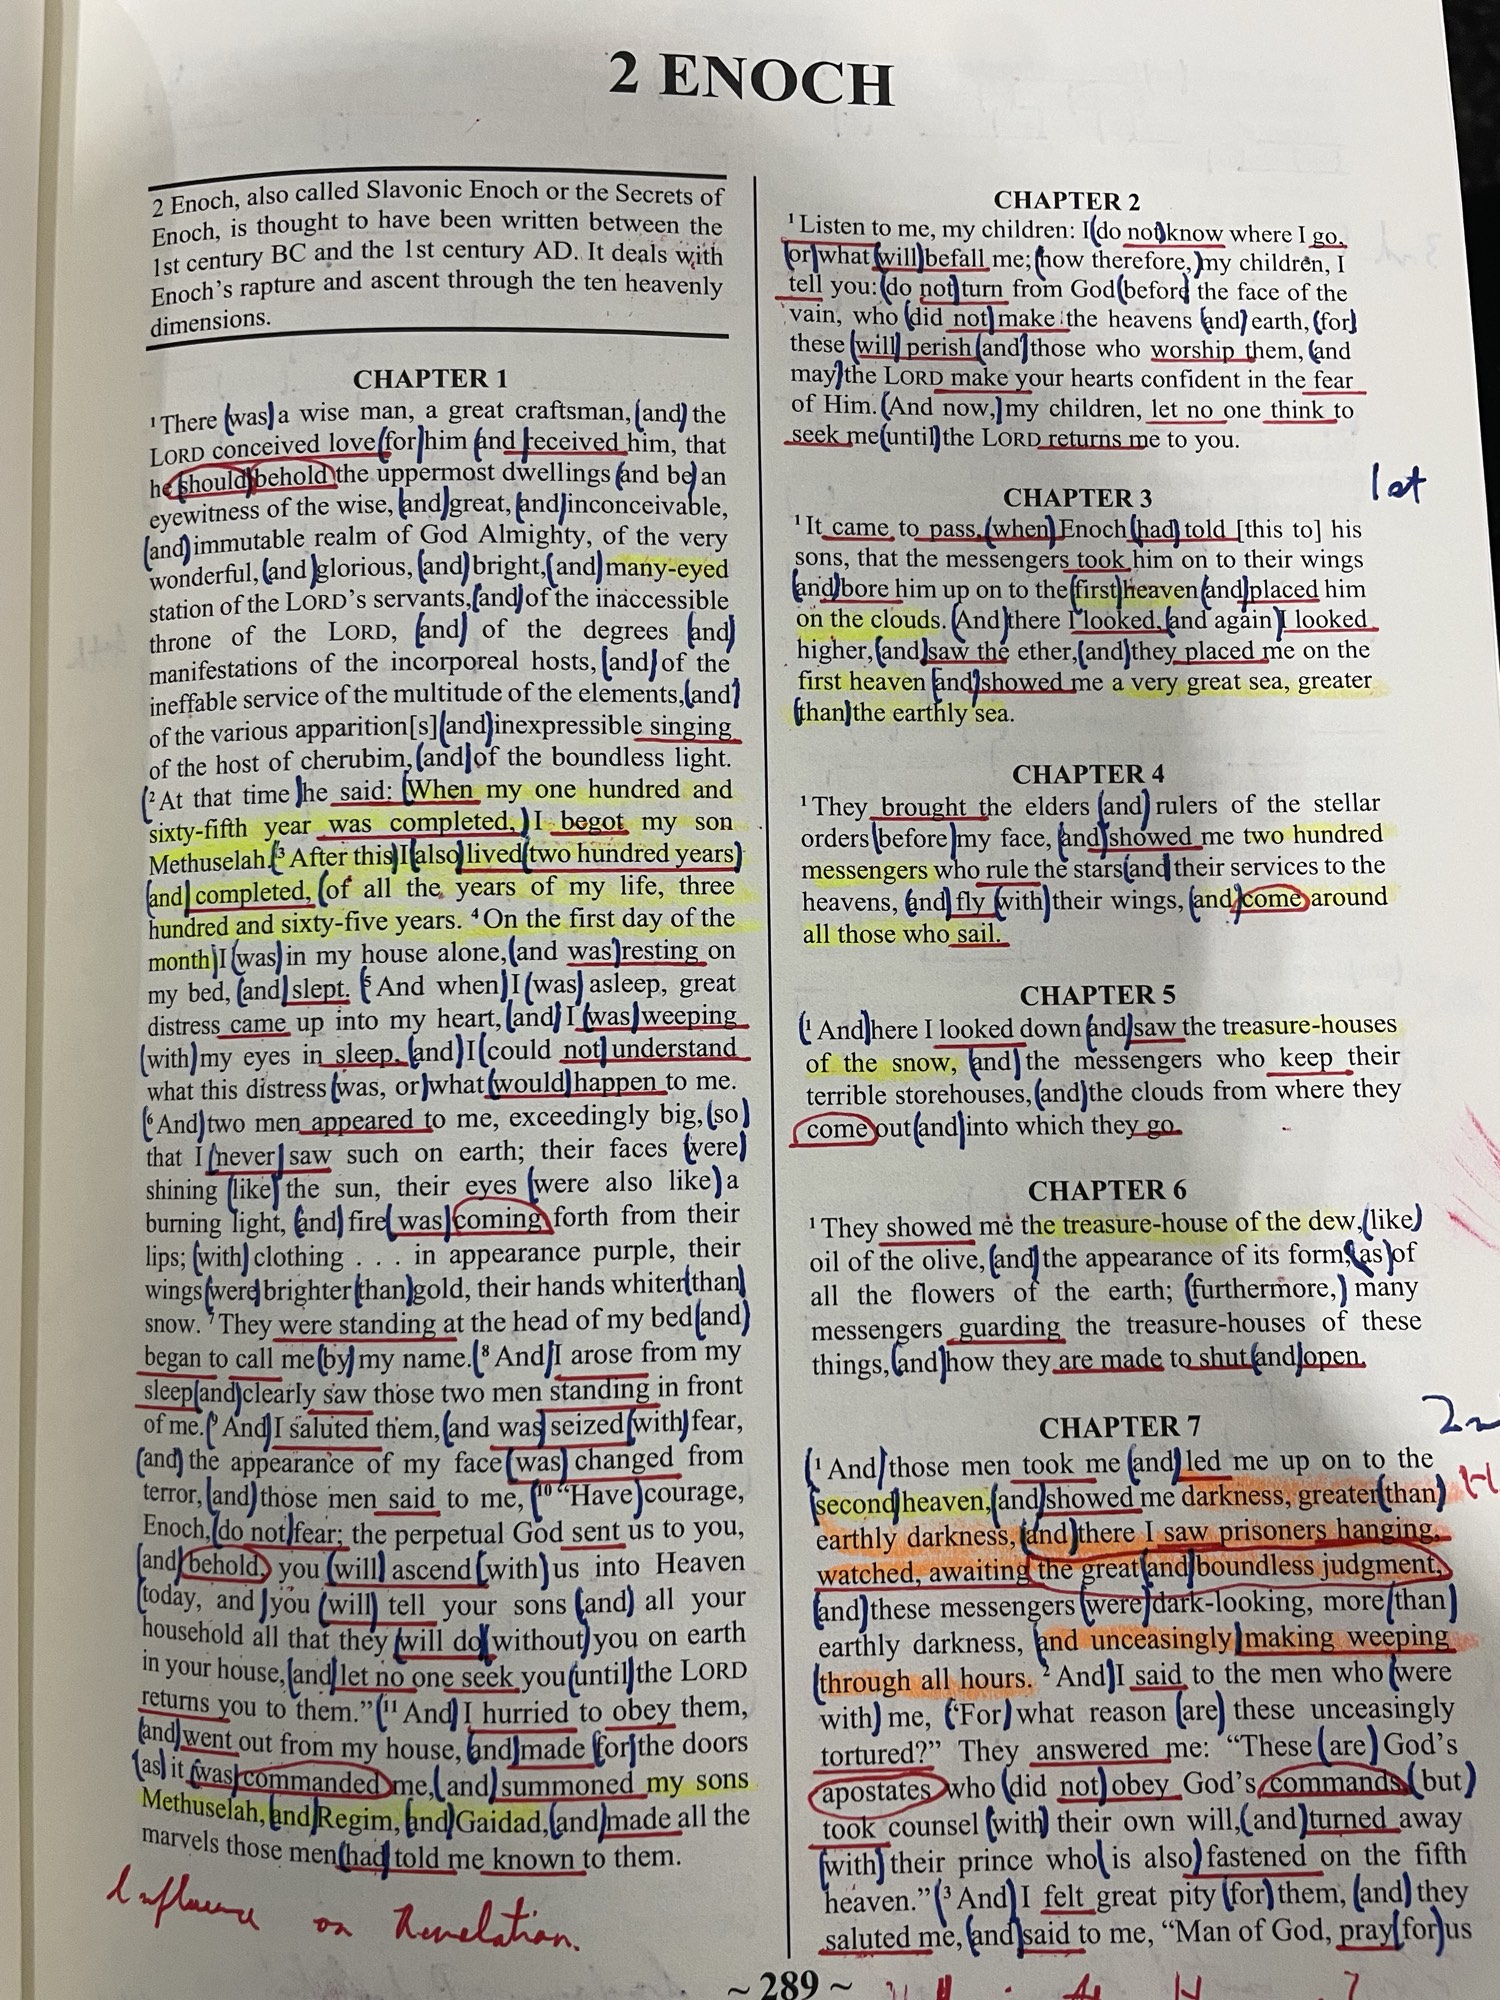 2 ENOCH
2 Enoch, also called Slavonic Enoch or the Secrets of
Enoch, is thought to have been written between the
1st century BC and the 1st century AD. It deals with
Enoch's rapture and ascent through the ten heavenly
dimensions.
CHAPTER 1
1 There (was) a wise man, a great craftsman, (and) the
LORD conceived love (for) him (and received him, that
he (should) behold the uppermost dwellings (and be) an
eyewitness of the wise, (and) great, (and) inconceivable,
(and) immutable realm of God Almighty, of the very
wonderful, (and) glorious, (and) bright, (and) many-eyed
station of the LORD's servants, (and) of the inaccessible
throne of the LORD, (and) of the degrees (and)
manifestations of the incorporeal hosts, (and) of the
ineffable service of the multitude of the elements, (and)
of the various apparition[s] (and) inexpressible singing
of the host of cherubim, (and) of the boundless light.
(2 At that time) he said: (When my one hundred and
sixty-fifth year was completed,) I begot my son
Methuselah. (3 After this) I (also) lived (two hundred years)
(and) completed, (of all the years of my life, three
hundred and sixty-five years. 4 On the first day of the
month) I (was) in my house alone, (and was) resting on
my bed, (and) slept. (5 And when) I (was) asleep, great
distress came up into my heart, (and) I (was) weeping
(with) my eyes in sleep, (and) I (could not) understand
what this distress (was, or) what (would) happen to me.
(6 And) two men appeared to me, exceedingly big, (so)
that I (never) saw such on earth; their faces (were)
shining (like) the sun, their eyes (were also like) a
burning light, (and) fire (was) coming forth from their
lips; (with) clothing . . . in appearance purple, their
wings (were) brighter (than) gold, their hands whiter (than)
snow. 7 They were standing at the head of my bed (and)
began to call me (by) my name. (8 And) I arose from my
sleep (and) clearly saw those two men standing in front
of me. (9 And) I saluted them, (and was) seized (with) fear,
(and) the appearance of my face (was) changed from
terror, (and) those men said to me, (10 "Have) courage,
Enoch, (do not) fear; the perpetual God sent us to you,
(and) behold, you (will) ascend (with) us into Heaven
(today, and) you (will) tell your sons (and) all your
household all that they (will do (without) you on earth
in your house, (and) let no one seek you (until) the LORD
returns you to them." (11 And) I hurried to obey them,
(and) went out from my house, (and) made (for) the doors
(as) it (was) commanded me, (and) summoned my sons
Methuselah, (and) Regim, (and) Gaidad, (and) made all the
marvels those men (had) told me known to them.
Influence on Revelation.
CHAPTER 2
1 Listen to me, my children: I (do not) know where I go,
(or) what (will) befall me; (now therefore,) my children, I
tell you: (do not) turn from God (before) the face of the
vain, who (did not) make the heavens (and) earth, (for)
these (will) perish (and) those who worship them, (and
may) the LORD make your hearts confident in the fear
of Him. (And now,) my children, let no one think to
seek me (until) the LORD returns me to you.
1st
CHAPTER 3
1 It came to pass, (when) Enoch (had) told [this to] his
sons, that the messengers took him on to their wings
(and) bore him up on to the (first) heaven (and) placed him
on the clouds. (And) there I looked, (and again) I looked
higher, (and) saw the ether, (and) they placed me on the
first heaven (and) showed me a very great sea, greater
(than) the earthly sea.
CHAPTER 4
1 They brought the elders (and) rulers of the stellar
orders (before) my face, (and) showed me two hundred
messengers who rule the stars (and) their services to the
heavens, (and) fly (with) their wings, (and) come around
all those who sail.
CHAPTER 5
(1 And) here I looked down (and) saw the treasure-houses
of the snow, (and) the messengers who keep their
terrible storehouses, (and) the clouds from where they
come out (and) into which they go.
CHAPTER 6
1 They showed me the treasure-house of the dew, (like)
oil of the olive, (and) the appearance of its form, (as) of
all the flowers of the earth; (furthermore,) many
messengers guarding the treasure-houses of these
things, (and) how they are made to shut (and) open.
CHAPTER 7
(1 And) those men took me (and) led me up on to the
(second) heaven, (and) showed me darkness, greater (than)
earthly darkness, (and) there I saw prisoners hanging,
watched, awaiting the great (and) boundless judgment,
(and) these messengers (were) dark-looking, more (than)
earthly darkness, (and unceasingly) making weeping
(through all hours. 2 And) I said to the men who (were
with) me, ("For) what reason (are) these unceasingly
tortured?" They answered me: "These (are) God's
apostates who (did not) obey God's commands (but)
took counsel (with) their own will, (and) turned away
(with) their prince who (is also) fastened on the fifth
heaven." (3 And) I felt great pity (for) them, (and) they
saluted me, (and) said to me, "Man of God, pray (for) us
~ 289 ~